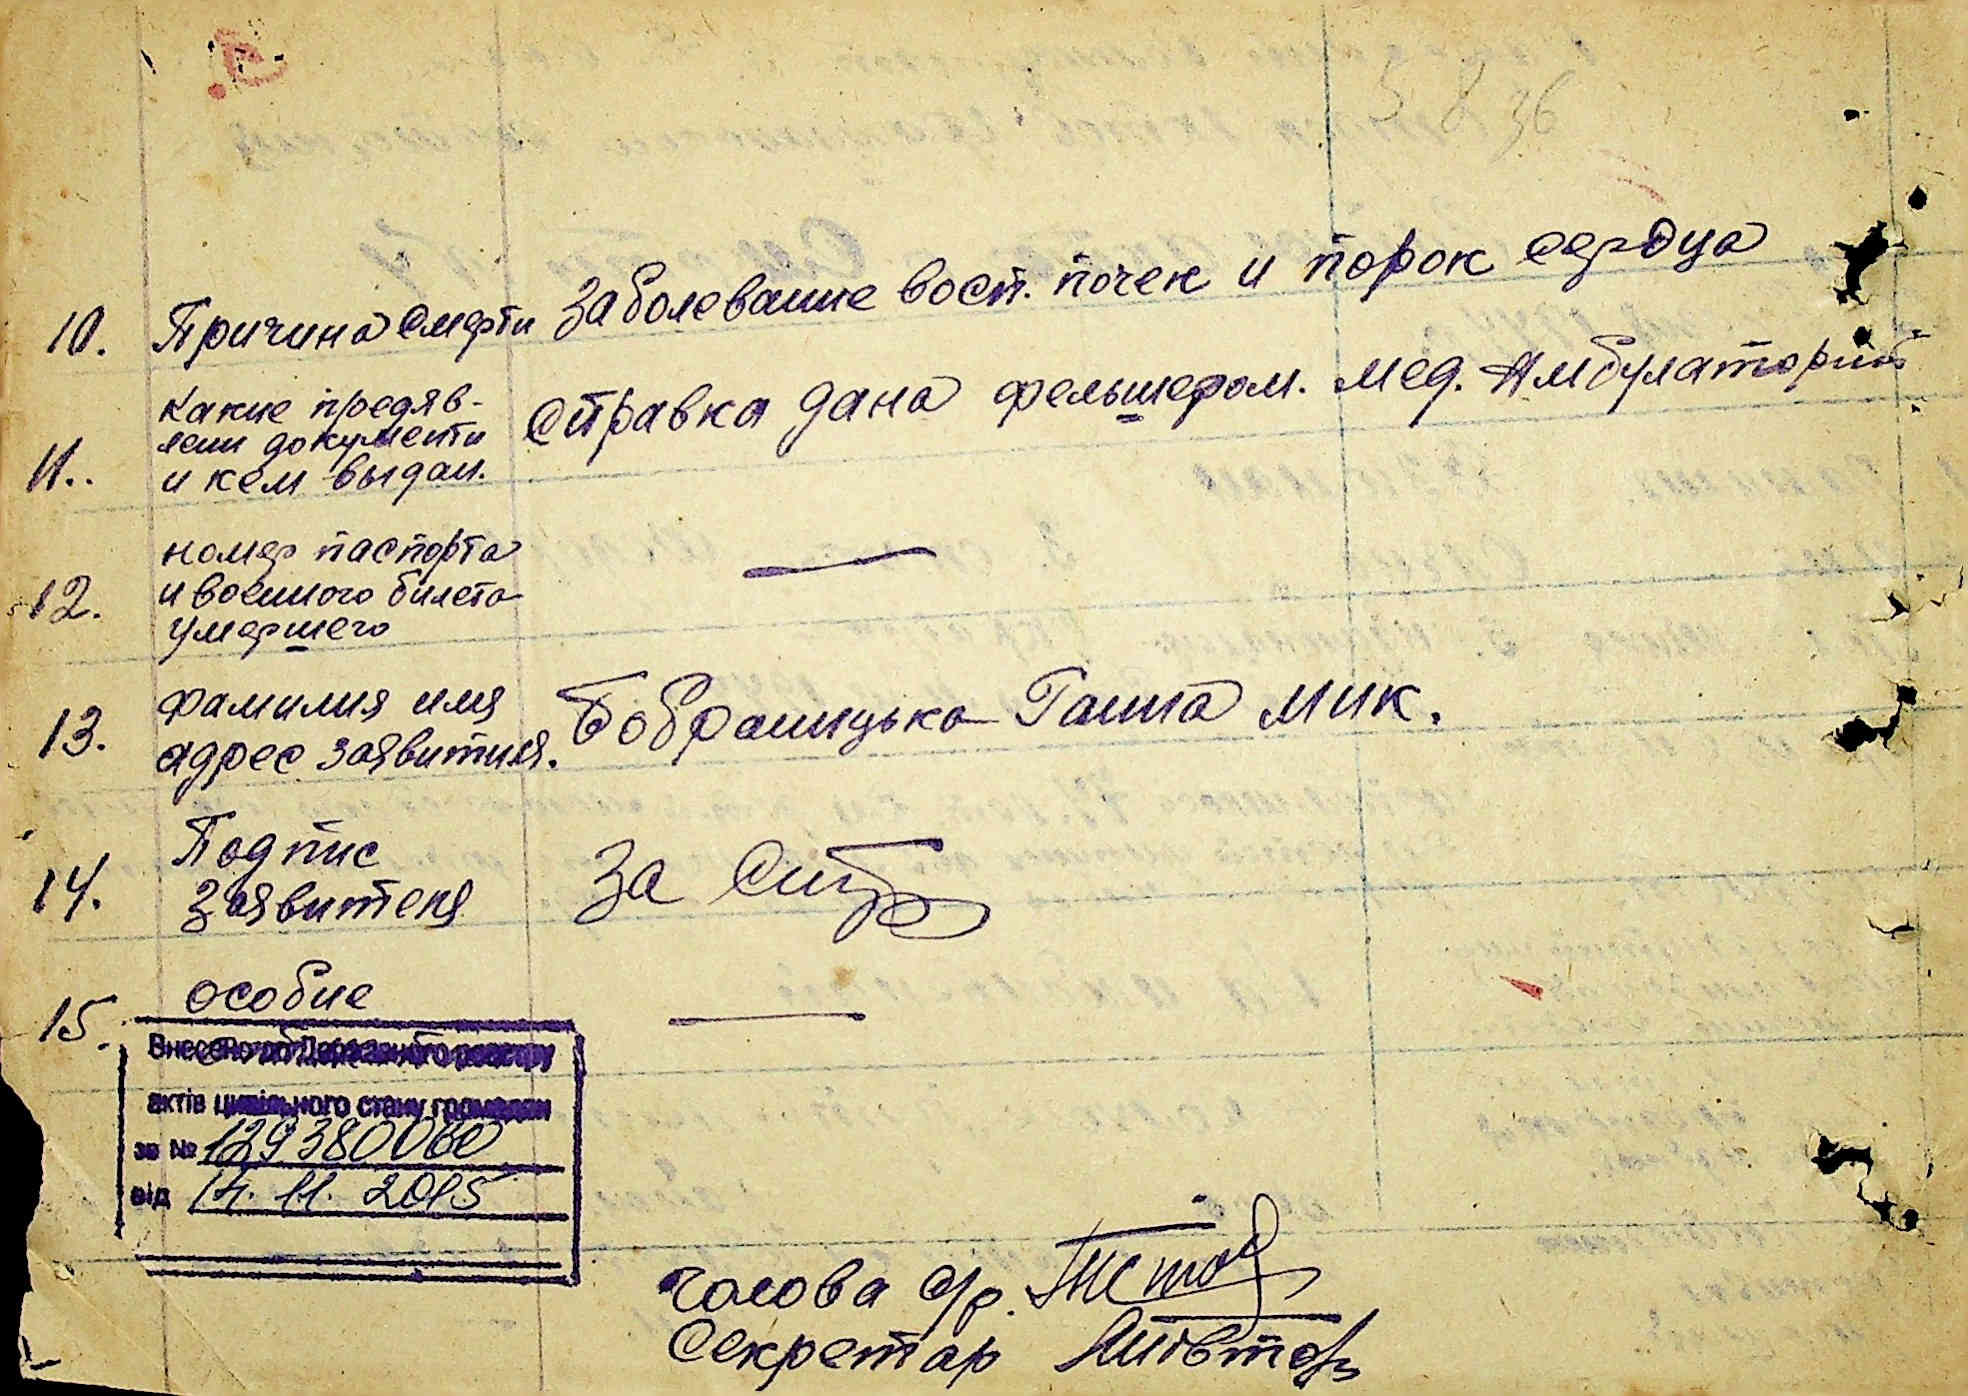 5 8 36
10. Причина смерти заболевание восп. почек и порок сердца
11. Какие предяв-
лени документи
и кем выдан.
справка дана фельшером. мед. Амбулаторий
12. номер паспорта
и военного билета
умершего —
13. фамилия имя
адрес заявитиля. Бобраницька Ганна мик.
14. Подпис
заявителя За
15. особие —
Внесено до Державного реєстру
актів цивільного стану громадян
за № 129380060
від 14.11.2015
голова с/р.
Секретар